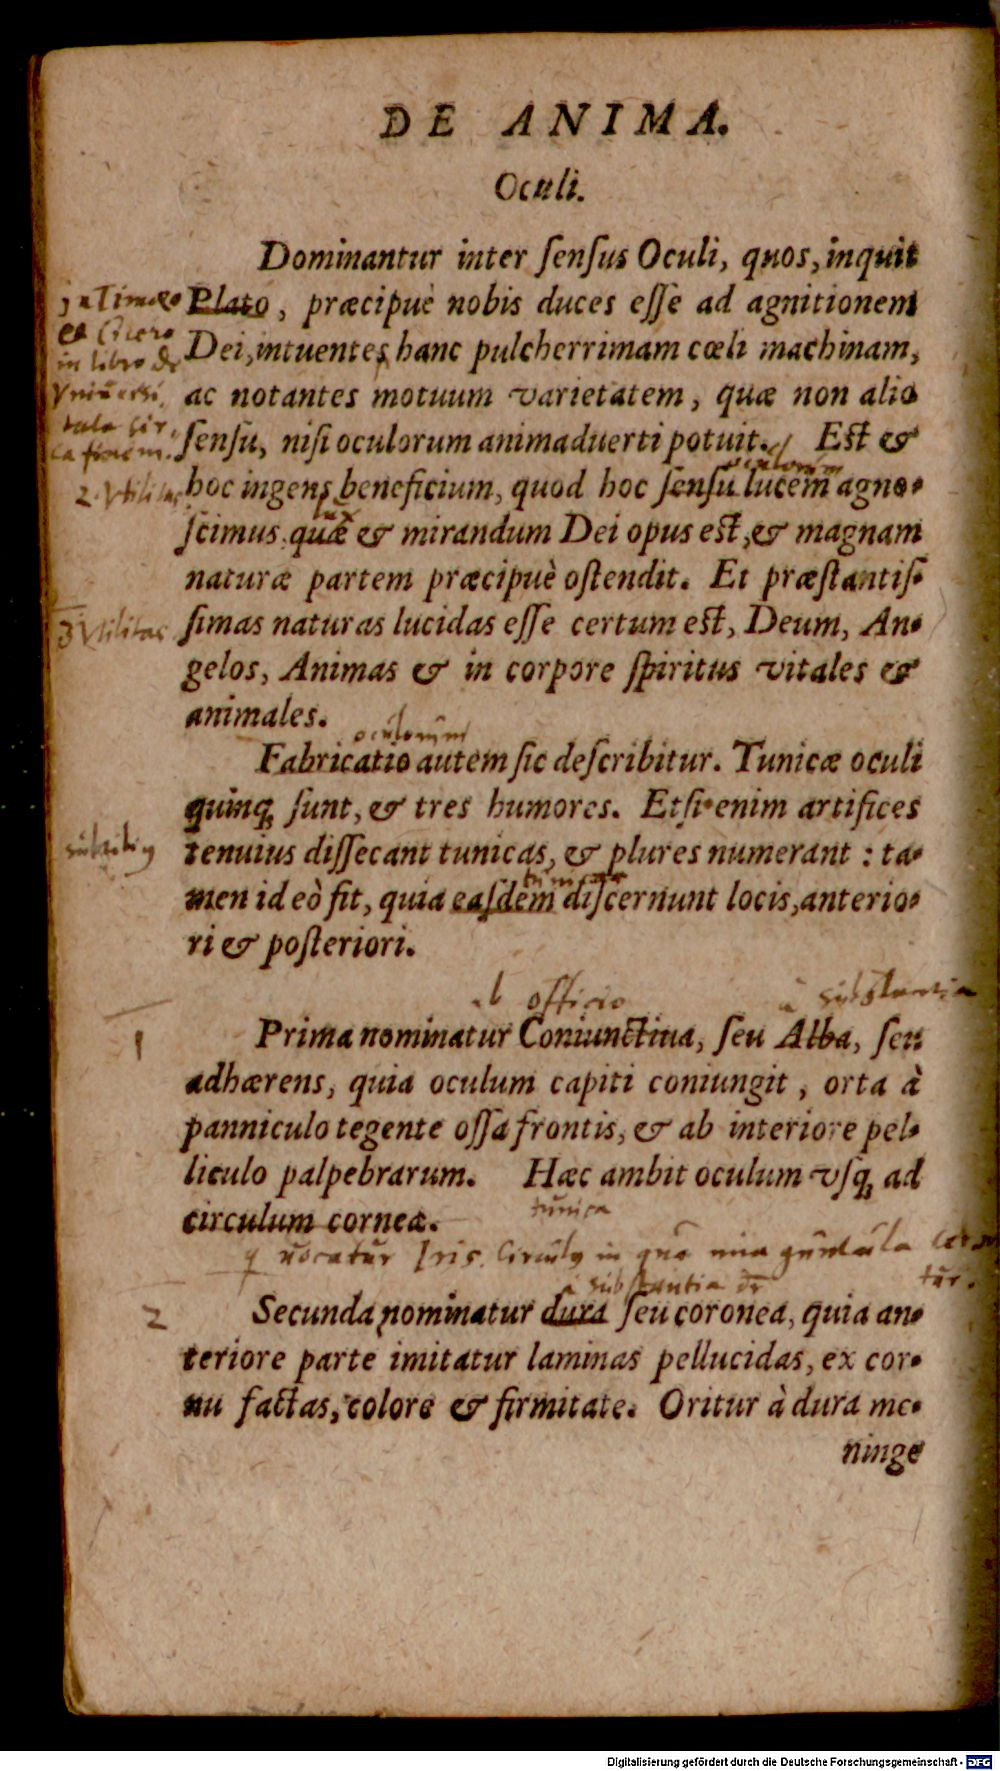 DE ANIMA.
Oculi.
Dominantur inter ſenſus Oculi, quos, inquit
in Timæo
Plato, præcipuè nobis duces eſſe ad agnitionem
et Cicero
Dei, intuentes hanc pulcherrimam cœli machinam,
in libro de
ac notantes motuum varietatem, quæ non alio
ſenſu, niſi oculorum animaduerti potuit. Eſt &
oculorum
2. Vtilitas
hoc ingens beneficium, quod hoc ſenſu lucem agno-
lux
ſcimus, quæ & mirandum Dei opus eſt, & magnam
naturæ partem præcipuè oſtendit. Et præſtantiſ-
3 Vtilitas
ſimas naturas lucidas eſſe certum eſt, Deum, An-
gelos, Animas & in corpore ſpiritus vitales &
animales.
oculorum
Fabricatio autem ſic deſcribitur. Tunicæ oculi
quinq; ſunt, & tres humores. Etſi enim artifices
tenuius diſſecant tunicas, & plures numerant : ta-
tunicas
men id eò fit, quia eaſdem diſcernunt locis, anterio-
ri & poſteriori.
ab officio à substantia
1
Prima nominatur Coniunctiua, ſeu Alba, ſeu
adhærens, quia oculum capiti coniungit, orta à
panniculo tegente oſſa frontis, & ab interiore pel-
liculo palpebrarum. Hæc ambit oculum vſq; ad
tunica
circulum corneæ.
uocatur Iris. in quo
à substantia
2
Secunda nominatur dura ſeu coronea, quia an-
teriore parte imitatur laminas pellucidas, ex cor-
nu factas, colore & firmitate. Oritur à dura me-
ninge
Digitalisierung gefördert durch die Deutsche Forschungsgemeinschaft - DFG